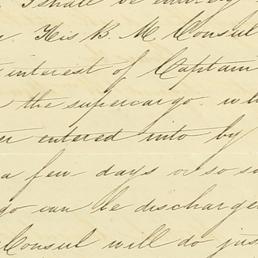 I shall be
. His B. M. Consul
interest of Capitain
the supercargo. wh
er entered into by
a few days or so so
go can be discharge
Consul will do jus